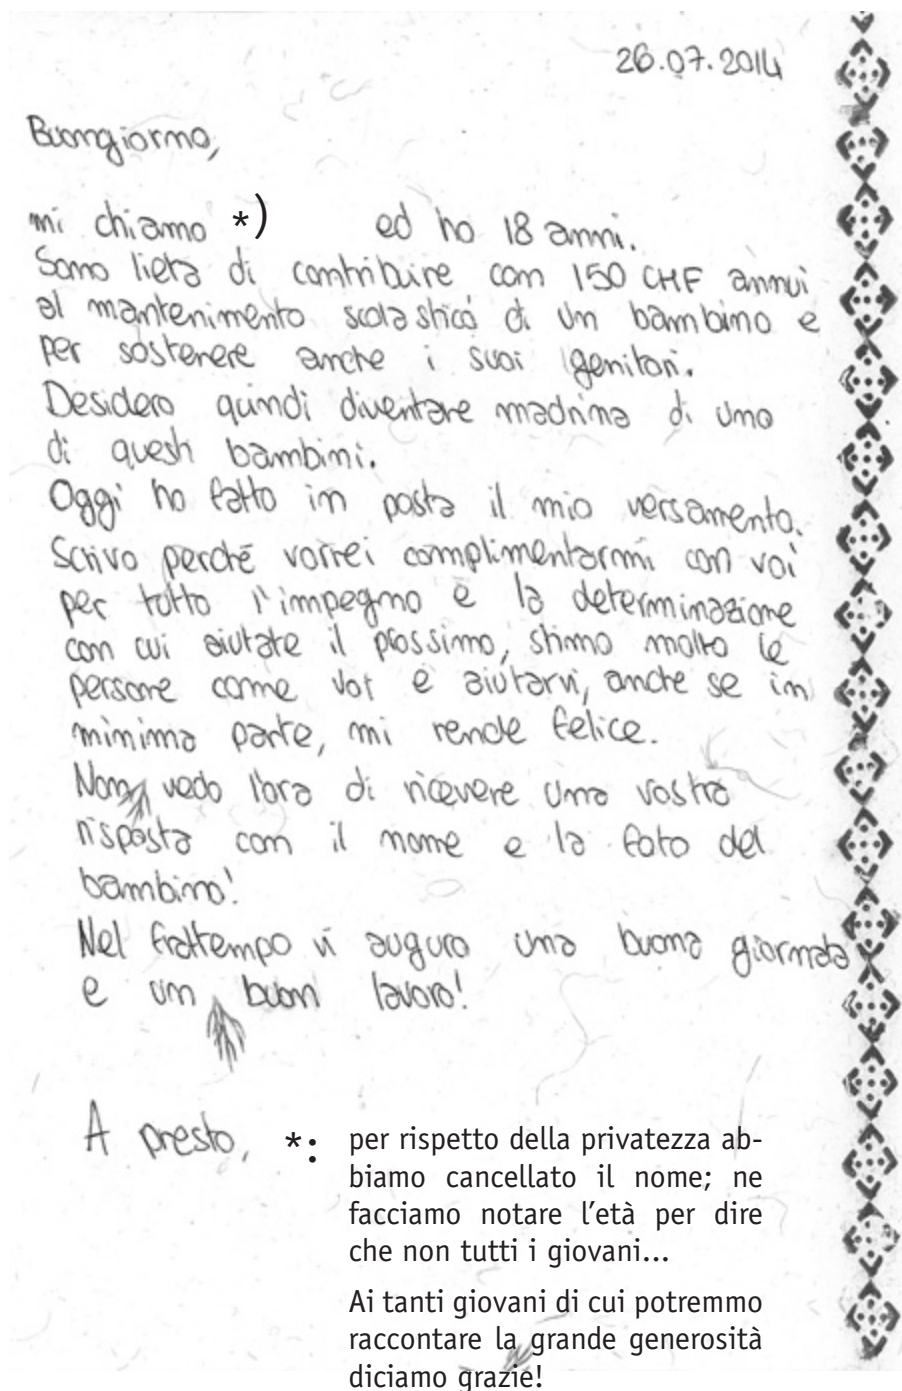 26.07.2014
Buongiorno,
mi chiamo *) ed ho 18 anni.
Sono lieta di contribuire con 150 CHF annui
al mantenimento scolastico di un bambino e
per sostenere anche i suoi genitori.
Desidero quindi diventare madrina di uno
di questi bambini.
Oggi ho fatto in posta il mio versamento.
Scrivo perché vorrei complimentarmi con voi
per tutto l'impegno e la determinazione
con cui aiutate il prossimo, stimo molto le
persone come voi e aiutarvi, anche se in
minima parte, mi rende felice.
Non vedo l'ora di ricevere una vostra
risposta con il nome e la foto del
bambino!
Nel frattempo vi auguro una buona giornata
e un buon lavoro!
A presto,
*: per rispetto della privatezza ab-
biamo cancellato il nome; ne
facciamo notare l'età per dire
che non tutti i giovani...
Ai tanti giovani di cui potremmo
raccontare la grande generosità
diciamo grazie!